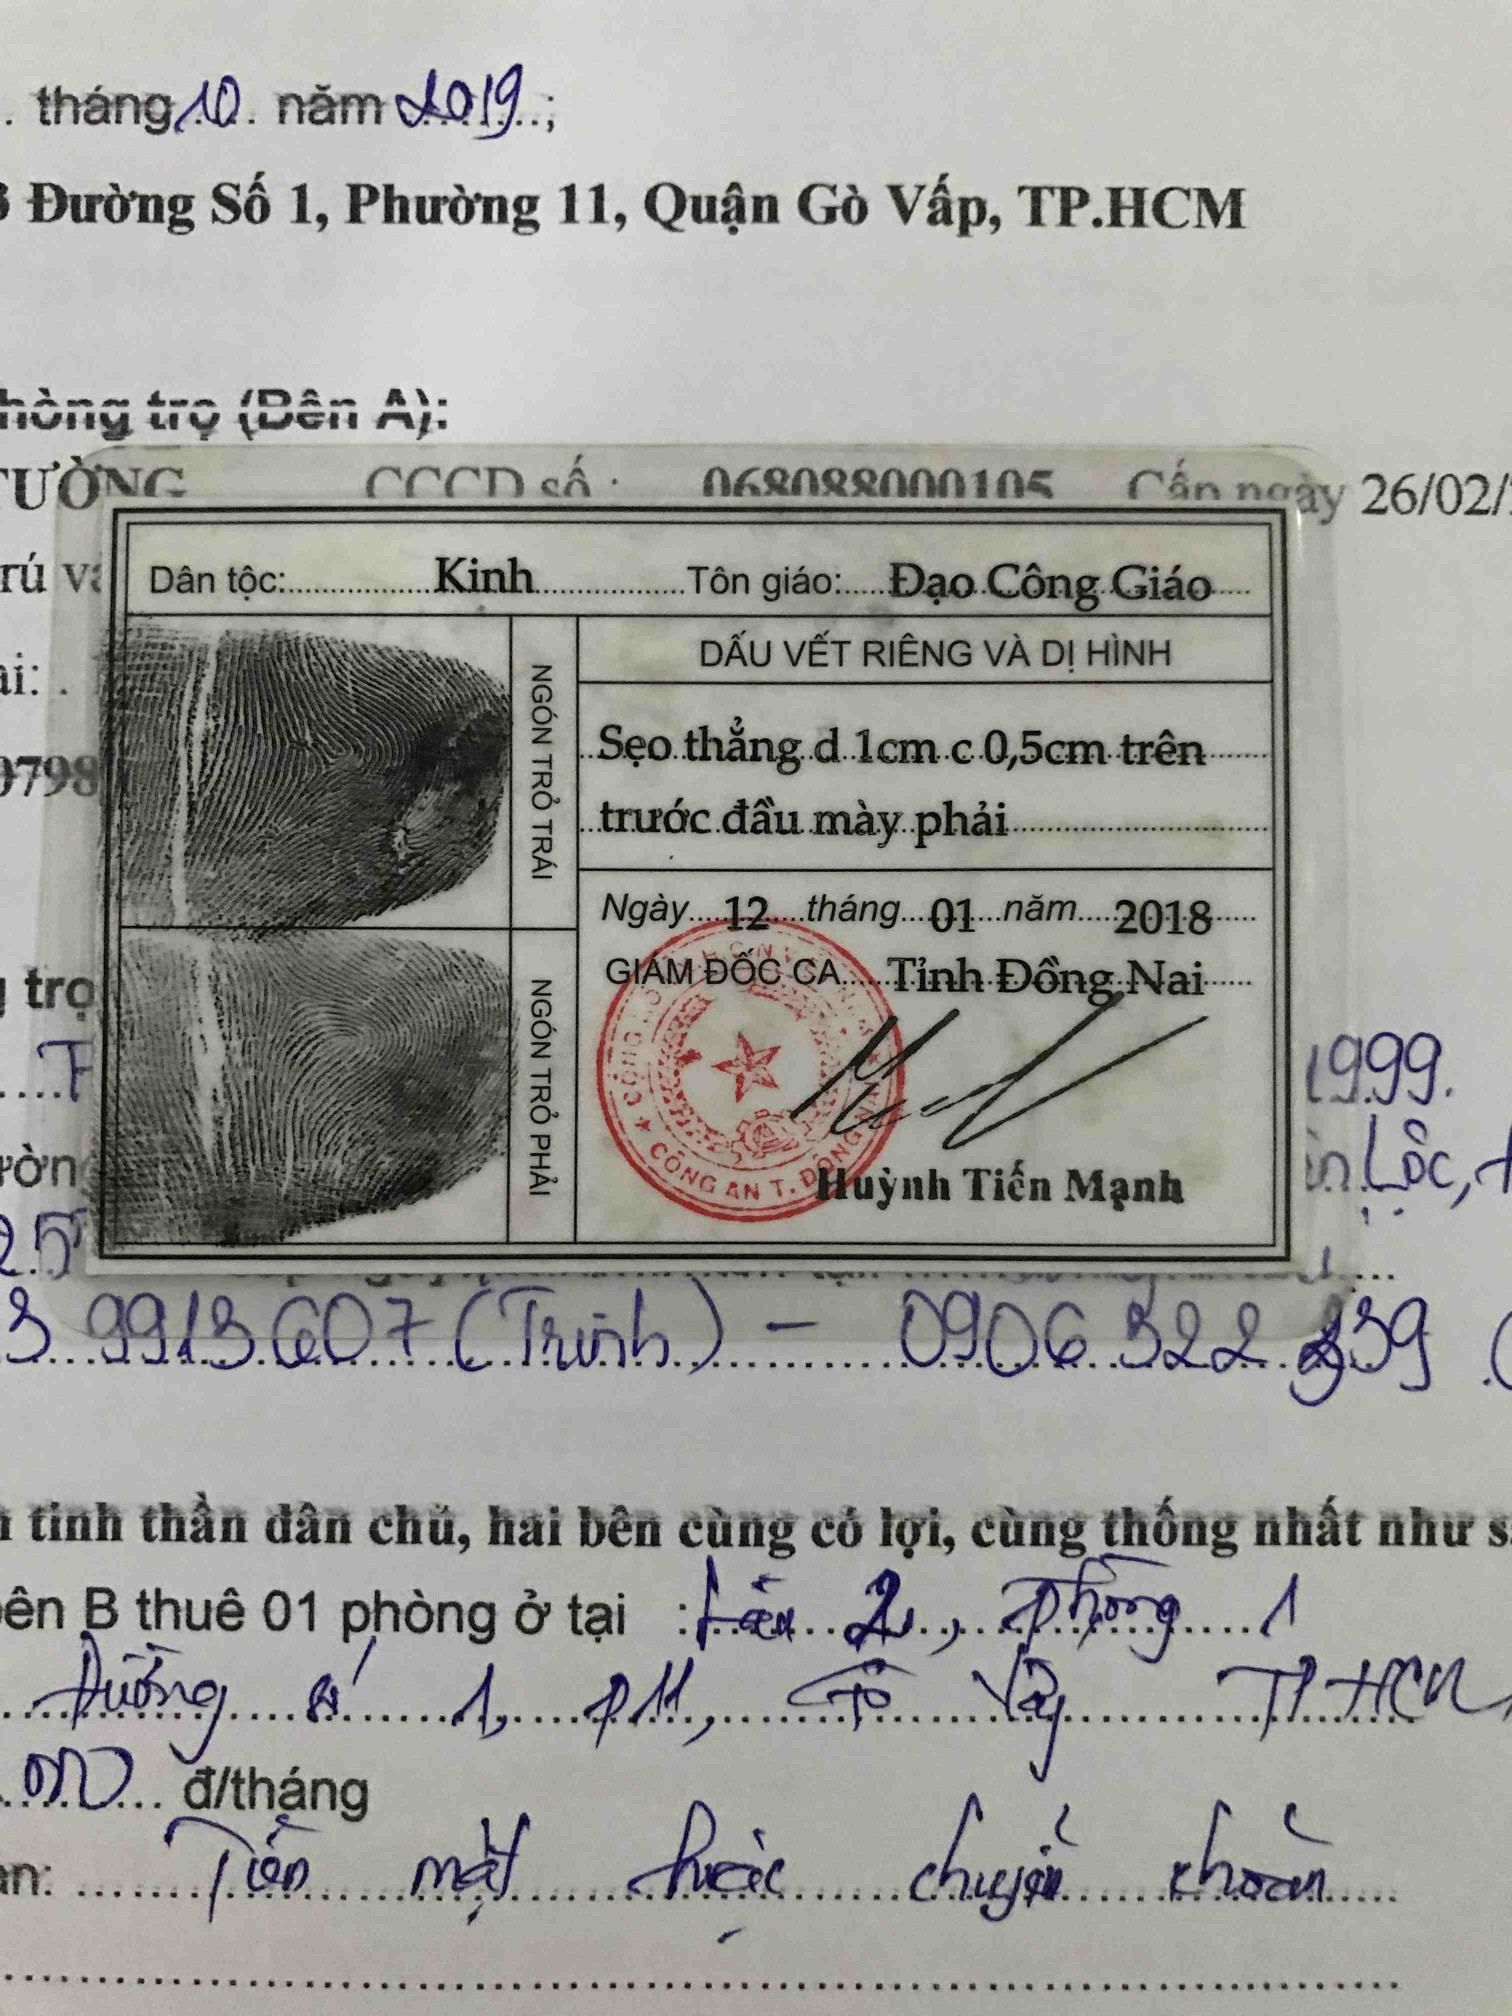 . tháng 10. năm 2019.;
Đường Số 1, Phường 11, Quận Gò Vấp, TP.HCM
hòng trọ (Bên A):
TƯỜNG CCCD số : 068088000105 Cấp ngày 26/02/
rú và
Dân tộc: Kinh Tôn giáo: Đạo Công Giáo
DẤU VẾT RIÊNG VÀ DỊ HÌNH
NGÓN TRỎ TRÁI
Sẹo thẳng d 1cm c 0,5cm trên
trước đầu mày phải
ại: .
0798
Ngày 12 tháng 01 năm 2018
GIÁM ĐỐC CA Tỉnh Đồng Nai
NGÓN TRỎ PHẢI
CÔNG AN T. ĐỒNG NAI
Huỳnh Tiến Mạnh
g trọ
1999.
Lộc,
25
3 9913.607 (Trinh) - 0906 322 239 (
tinh thần dân chủ, hai bên cùng có lợi, cùng thống nhất như s
bên B thuê 01 phòng ở tại : Lầu 2, Phòng 1
Đường số 1, P11, Gò Vấp TP HCM
đ/tháng
an: Tiền mặt hoặc chuyển khoản